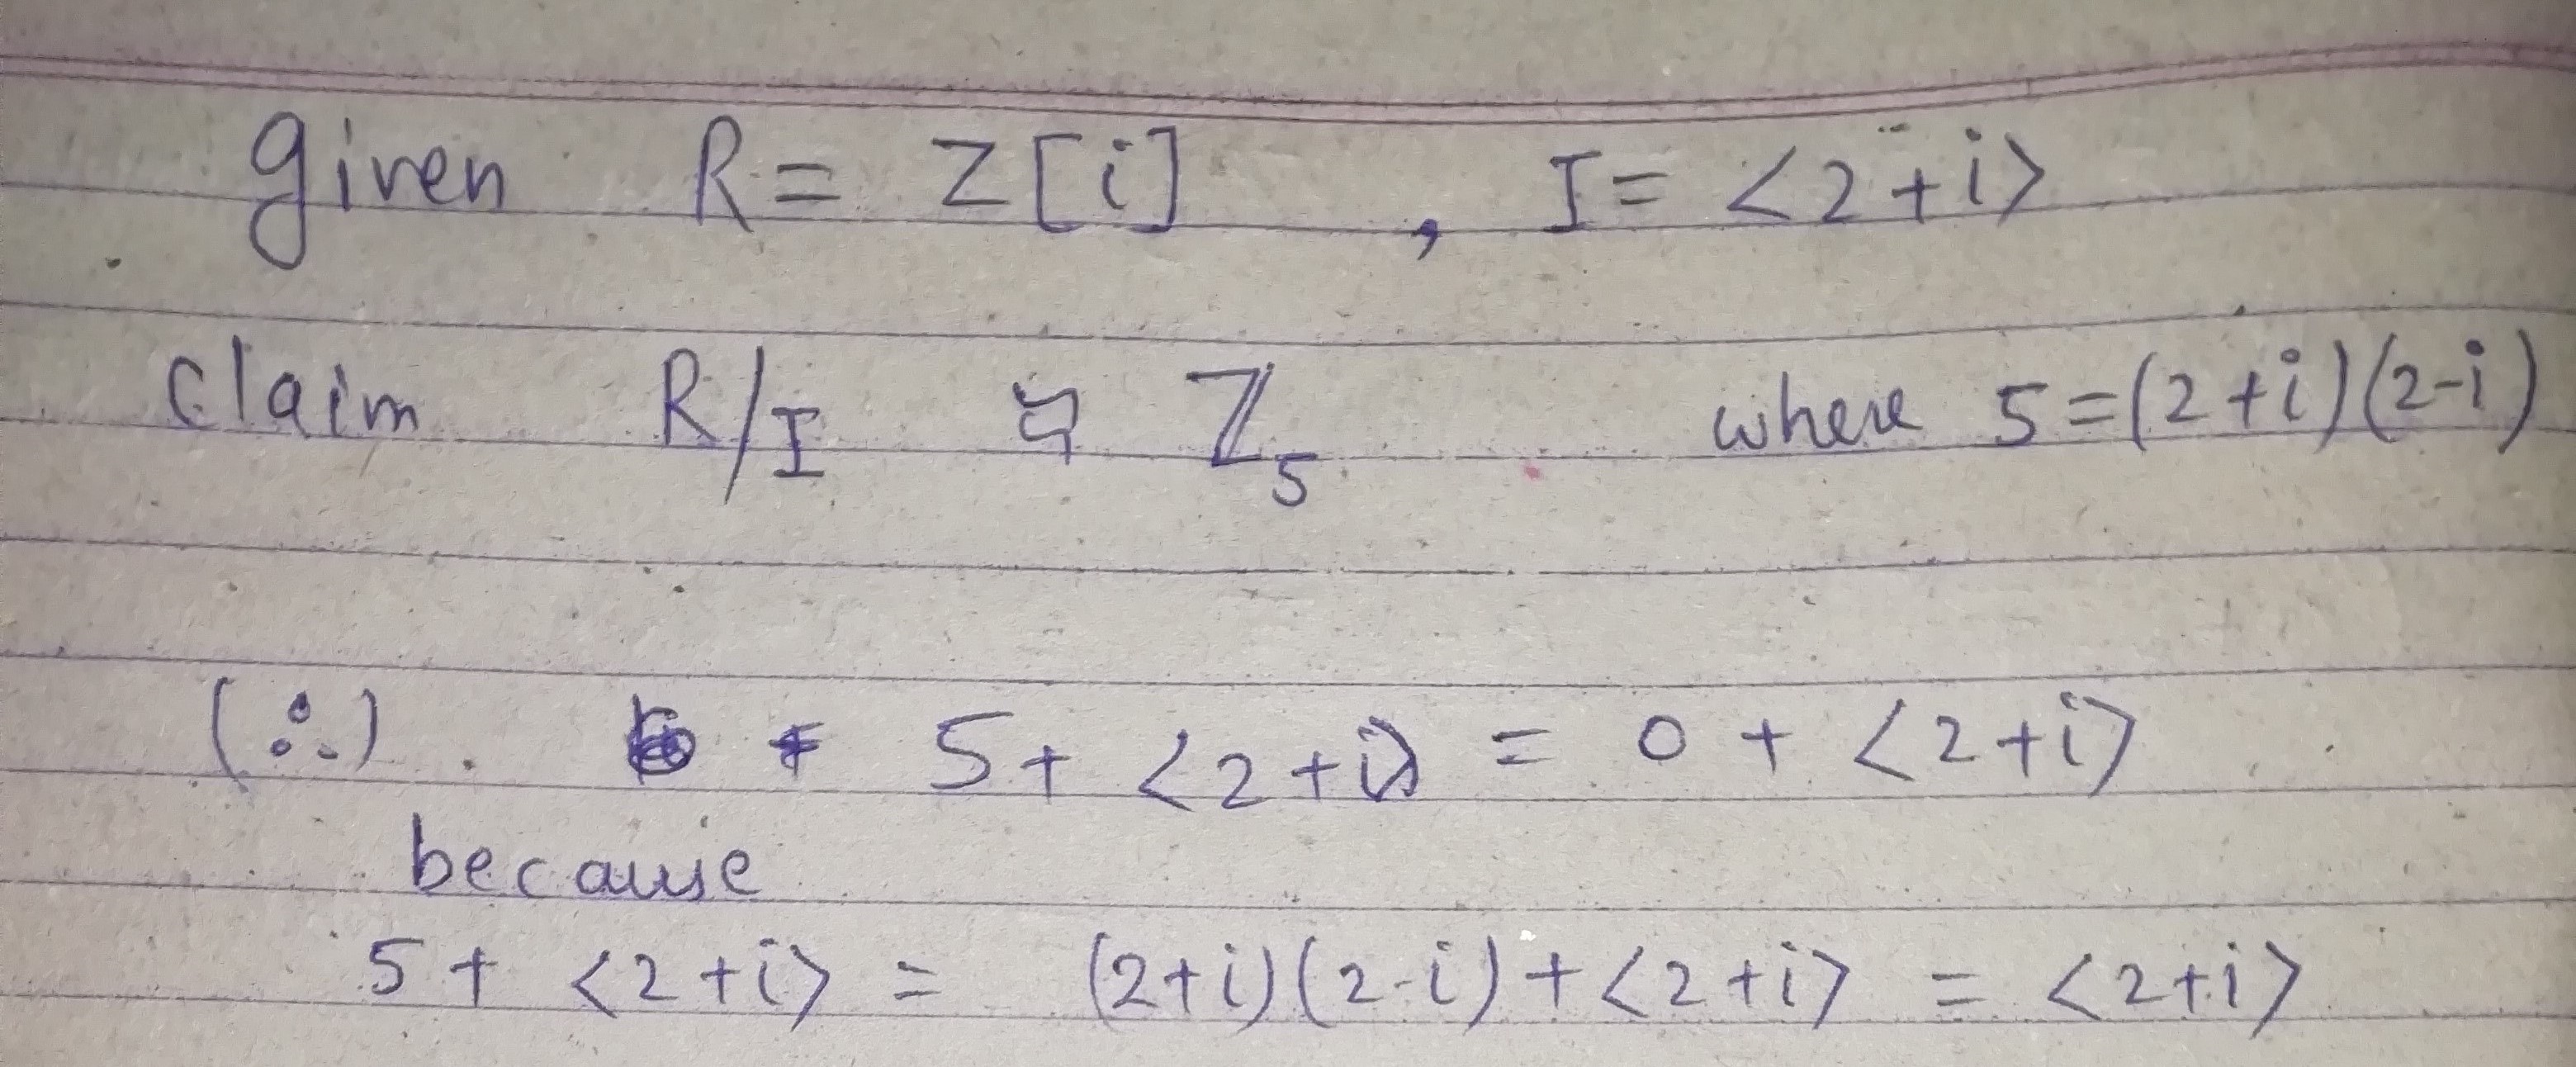 given R = Z[i] , I = <2+i>
claim R/I ≈ ℤ₅ where 5=(2+i)(2-i)
(∴) . 5+ <2+i> = 0 + <2+i>
because
5+ <2+i> = (2+i)(2-i)+<2+i> = <2+i>